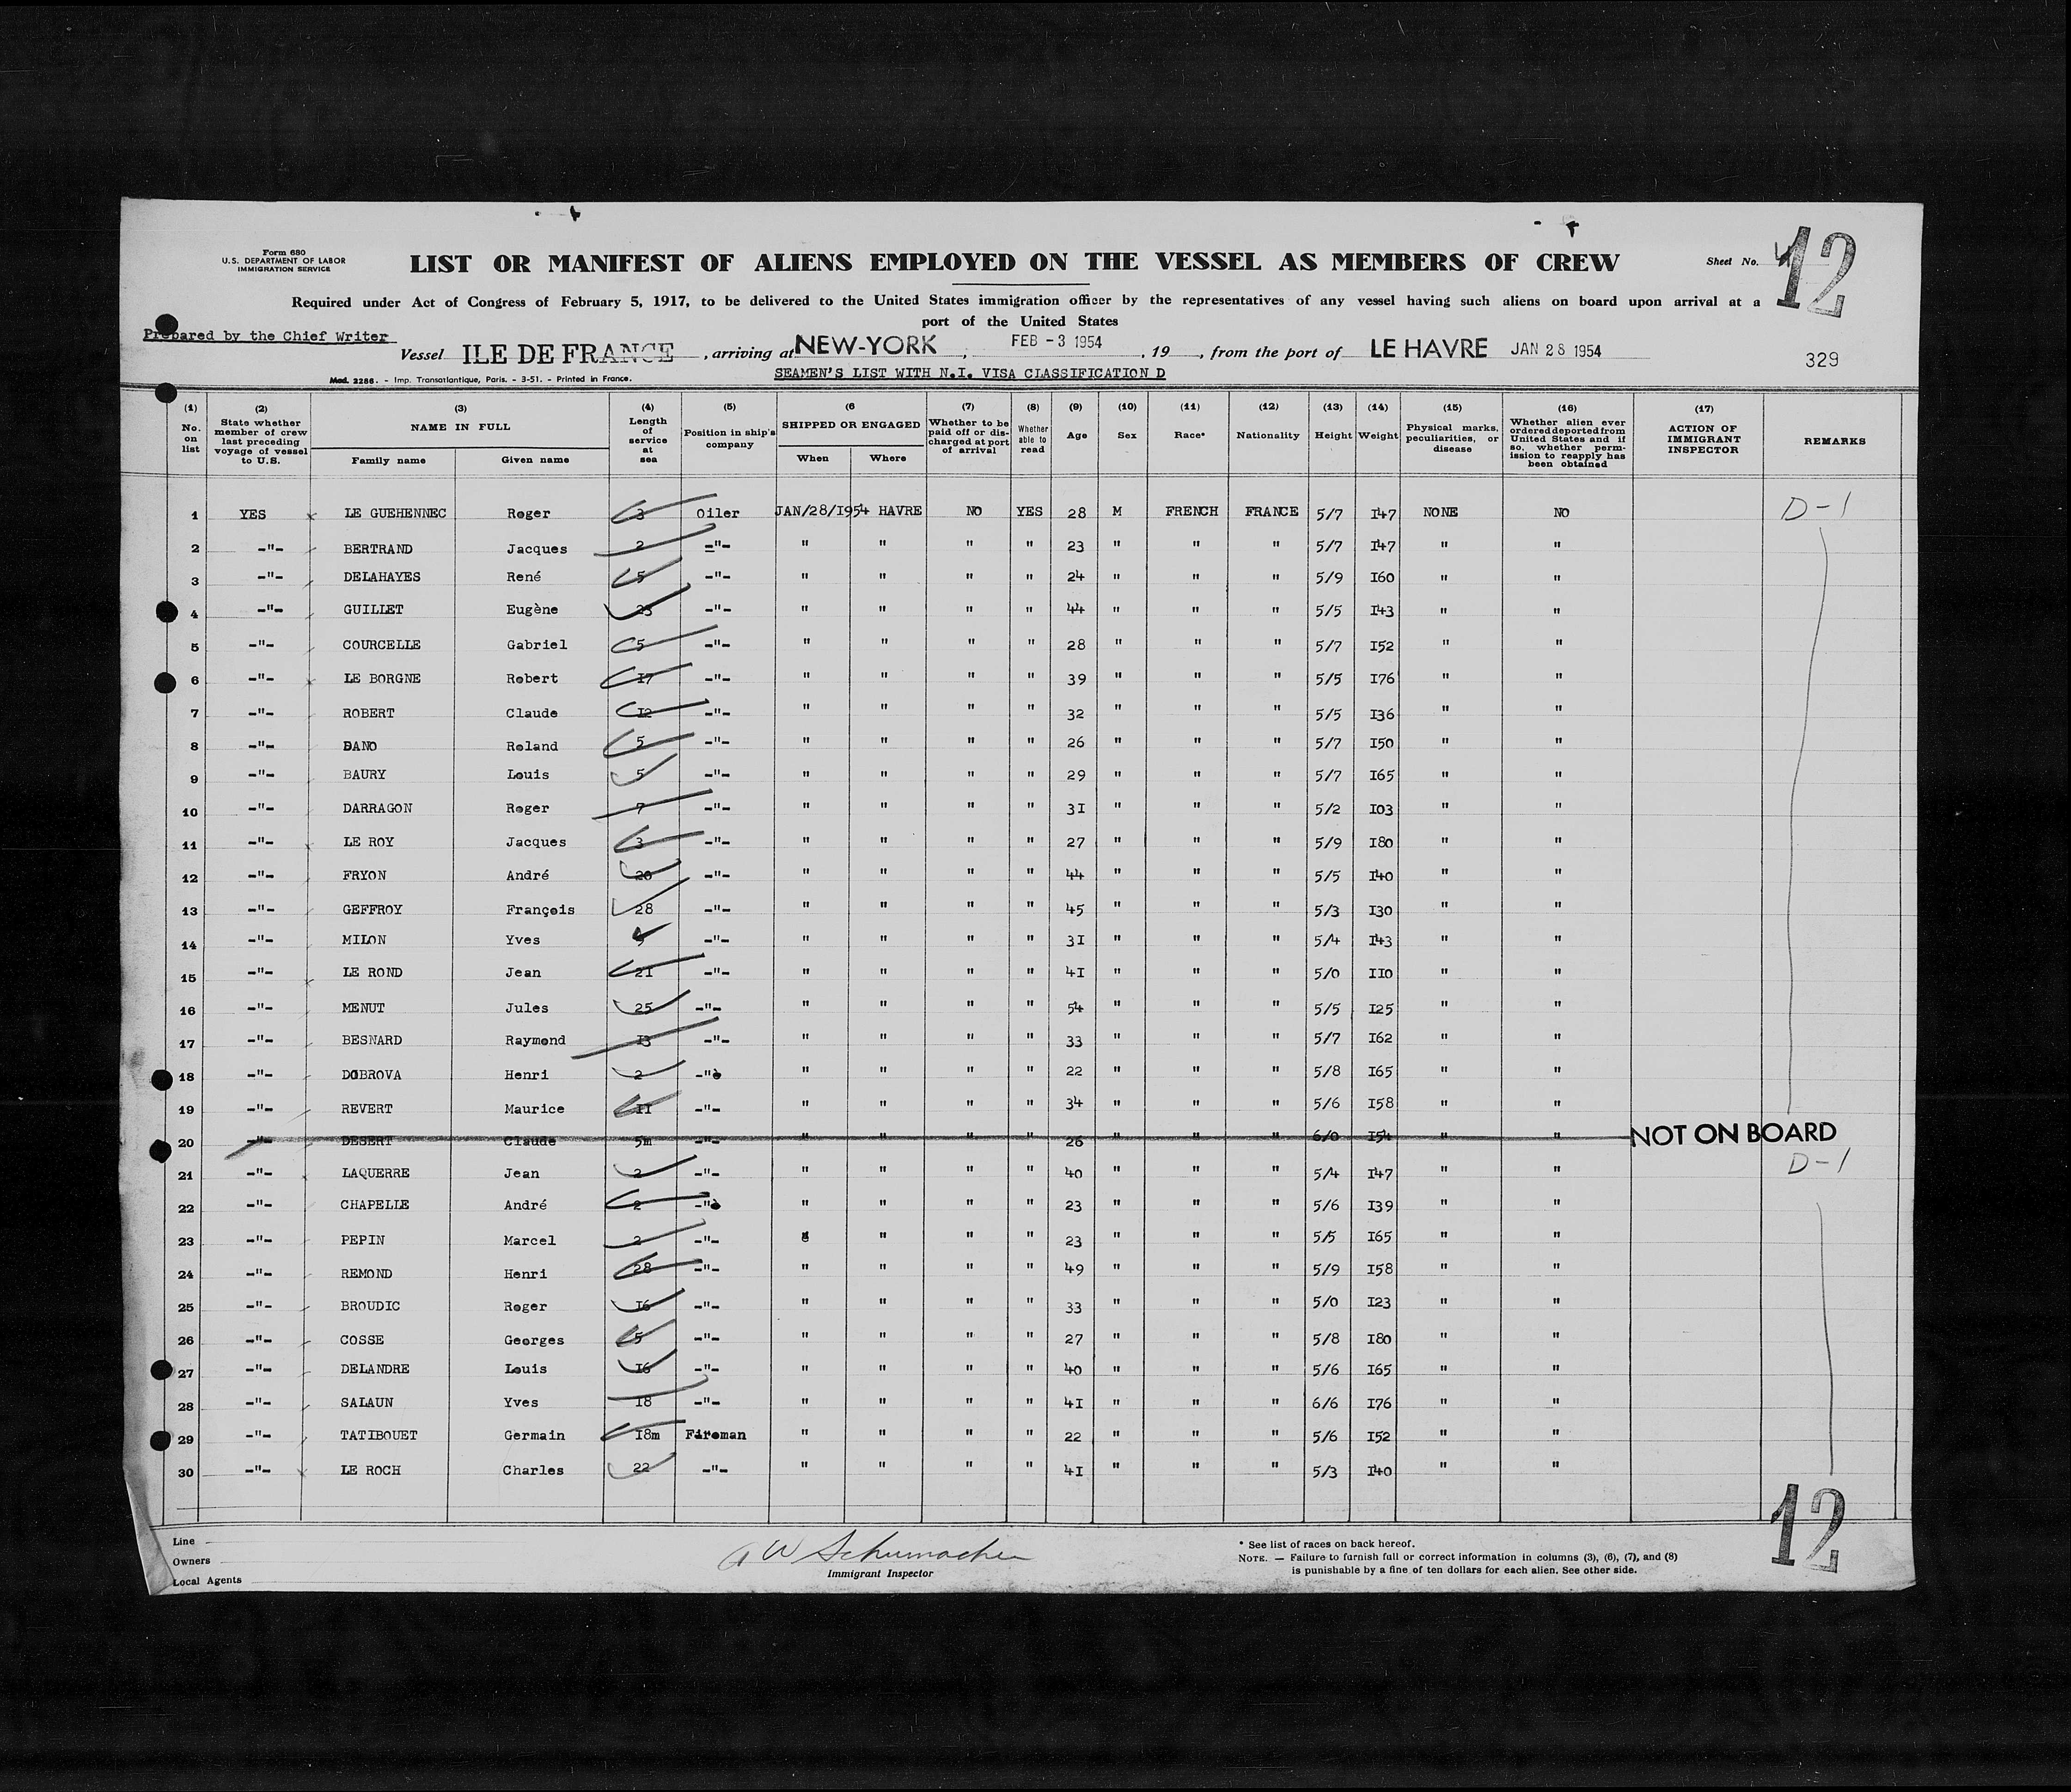 Form 680
U.S. DEPARTMENT OF LABOR
IMMIGRATION SERVICE
LIST OR MANIFEST OF ALIENS EMPLOYED ON THE VESSEL AS MEMBERS OF CREW
Sheet No. 12
Required under Act of Congress of February 5, 1917, to be delivered to the United States immigration officer by the representatives of any vessel having such aliens on board upon arrival at a
port of the United States
Prepared by the Chief Writer
Vessel ILE DE FRANCE, arriving at NEW-YORK, FEB -3 1954, 19, from the port of LE HAVRE JAN 28 1954
329
Mod. 2286. - Imp. Transatlantique, Paris. - 3-51. - Printed in France.
SEAMEN'S LIST WITH N.I. VISA CLASSIFICATION D
(1) No. on list (2) State whether member of crew last preceding voyage of vessel to U.S. (3) NAME IN FULL Family name Given name (4) Length of service at sea (5) Position in ship's company (6 SHIPPED OR ENGAGED When Where (7) Whether to be paid off or discharged at port of arrival (8) Whether able to read (9) Age (10) Sex (11) Race* (12) Nationality (13) Height (14) Weight (15) Physical marks, peculiarities, or disease (16) Whether alien ever ordered deported from United States and if so, whether permission to reapply has been obtained (17) ACTION OF IMMIGRANT INSPECTOR REMARKS
1 YES LE GUEHENNEC Roger 3 Oiler JAN/28/1954 HAVRE NO YES 28 M FRENCH FRANCE 5/7 147 NONE NO D-1
2 -"- BERTRAND Jacques 2 -"- " " " " 23 " " " 5/7 147 " "
3 -"- DELAHAYES René 5 -"- " " " " 24 " " " 5/9 160 " "
4 -"- GUILLET Eugène 23 -"- " " " " 44 " " " 5/5 143 " "
5 -"- COURCELLE Gabriel 5 -"- " " " " 28 " " " 5/7 152 " "
6 -"- LE BORGNE Robert 17 -"- " " " " 39 " " " 5/5 176 " "
7 -"- ROBERT Claude 12 -"- " " " " 32 " " " 5/5 136 " "
8 -"- DANO Roland 5 -"- " " " " 26 " " " 5/7 150 " "
9 -"- BAURY Louis 5 -"- " " " " 29 " " " 5/7 165 " "
10 -"- DARRAGON Roger 7 -"- " " " " 31 " " " 5/2 103 " "
11 -"- LE ROY Jacques 3 -"- " " " " 27 " " " 5/9 180 " "
12 -"- FRYON André 20 -"- " " " " 44 " " " 5/5 140 " "
13 -"- GEFFROY François 28 -"- " " " " 45 " " " 5/3 130 " "
14 -"- MILON Yves -"- " " " " 31 " " " 5/4 143 " "
15 -"- LE ROND Jean 21 -"- " " " " 41 " " " 5/0 110 " "
16 -"- MENUT Jules 25 -"- " " " " 54 " " " 5/5 125 " "
17 -"- BESNARD Raymond 13 -"- " " " " 33 " " " 5/7 162 " "
18 -"- DOBROVA Henri 2 -"- " " " " 22 " " " 5/8 165 " "
19 -"- REVERT Maurice 11 -"- " " " " 34 " " " 5/6 158 " "
20 -"- DESERT Claude 5m -"- " " " " 26 " " " 6/0 154 " " NOT ON BOARD
21 -"- LAQUERRE Jean 2 -"- " " " " 40 " " " 5/4 147 " " D-1
22 -"- CHAPELLE André 2 -"- " " " " 23 " " " 5/6 139 " "
23 -"- PEPIN Marcel 2 -"- " " " 23 " " " 5/5 165 " "
24 -"- REMOND Henri 28 -"- " " " " 49 " " " 5/9 158 " "
25 -"- BROUDIC Roger 16 -"- " " " " 33 " " " 5/0 123 " "
26 -"- COSSE Georges 5 -"- " " " " 27 " " " 5/8 180 " "
27 -"- DELANDRE Louis 16 -"- " " " " 40 " " " 5/6 165 " "
28 -"- SALAUN Yves 18 -"- " " " " 41 " " " 6/6 176 " "
29 -"- TATIBOUET Germain 18m Fireman " " " " 22 " " " 5/6 152 " "
30 -"- LE ROCH Charles 22 -"- " " " " 41 " " " 5/3 140 " "
12
Line
Owners
Local Agents
A W Schumacher
Immigrant Inspector
* See list of races on back hereof.
NOTE. — Failure to furnish full or correct information in columns (3), (6), (7), and (8)
is punishable by a fine of ten dollars for each alien. See other side.